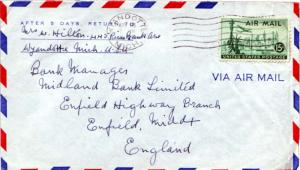 AFTER 5 DAYS, RETURN TO
Mrs H. Hilton
Wyandotte Mich. U.S.A.
AIR MAIL
15¢
UNITED STATES POSTAGE
VIA AIR MAIL
Bank Manager
Midland Bank Limited
Enfield Highway Branch
Enfield, Middx
England